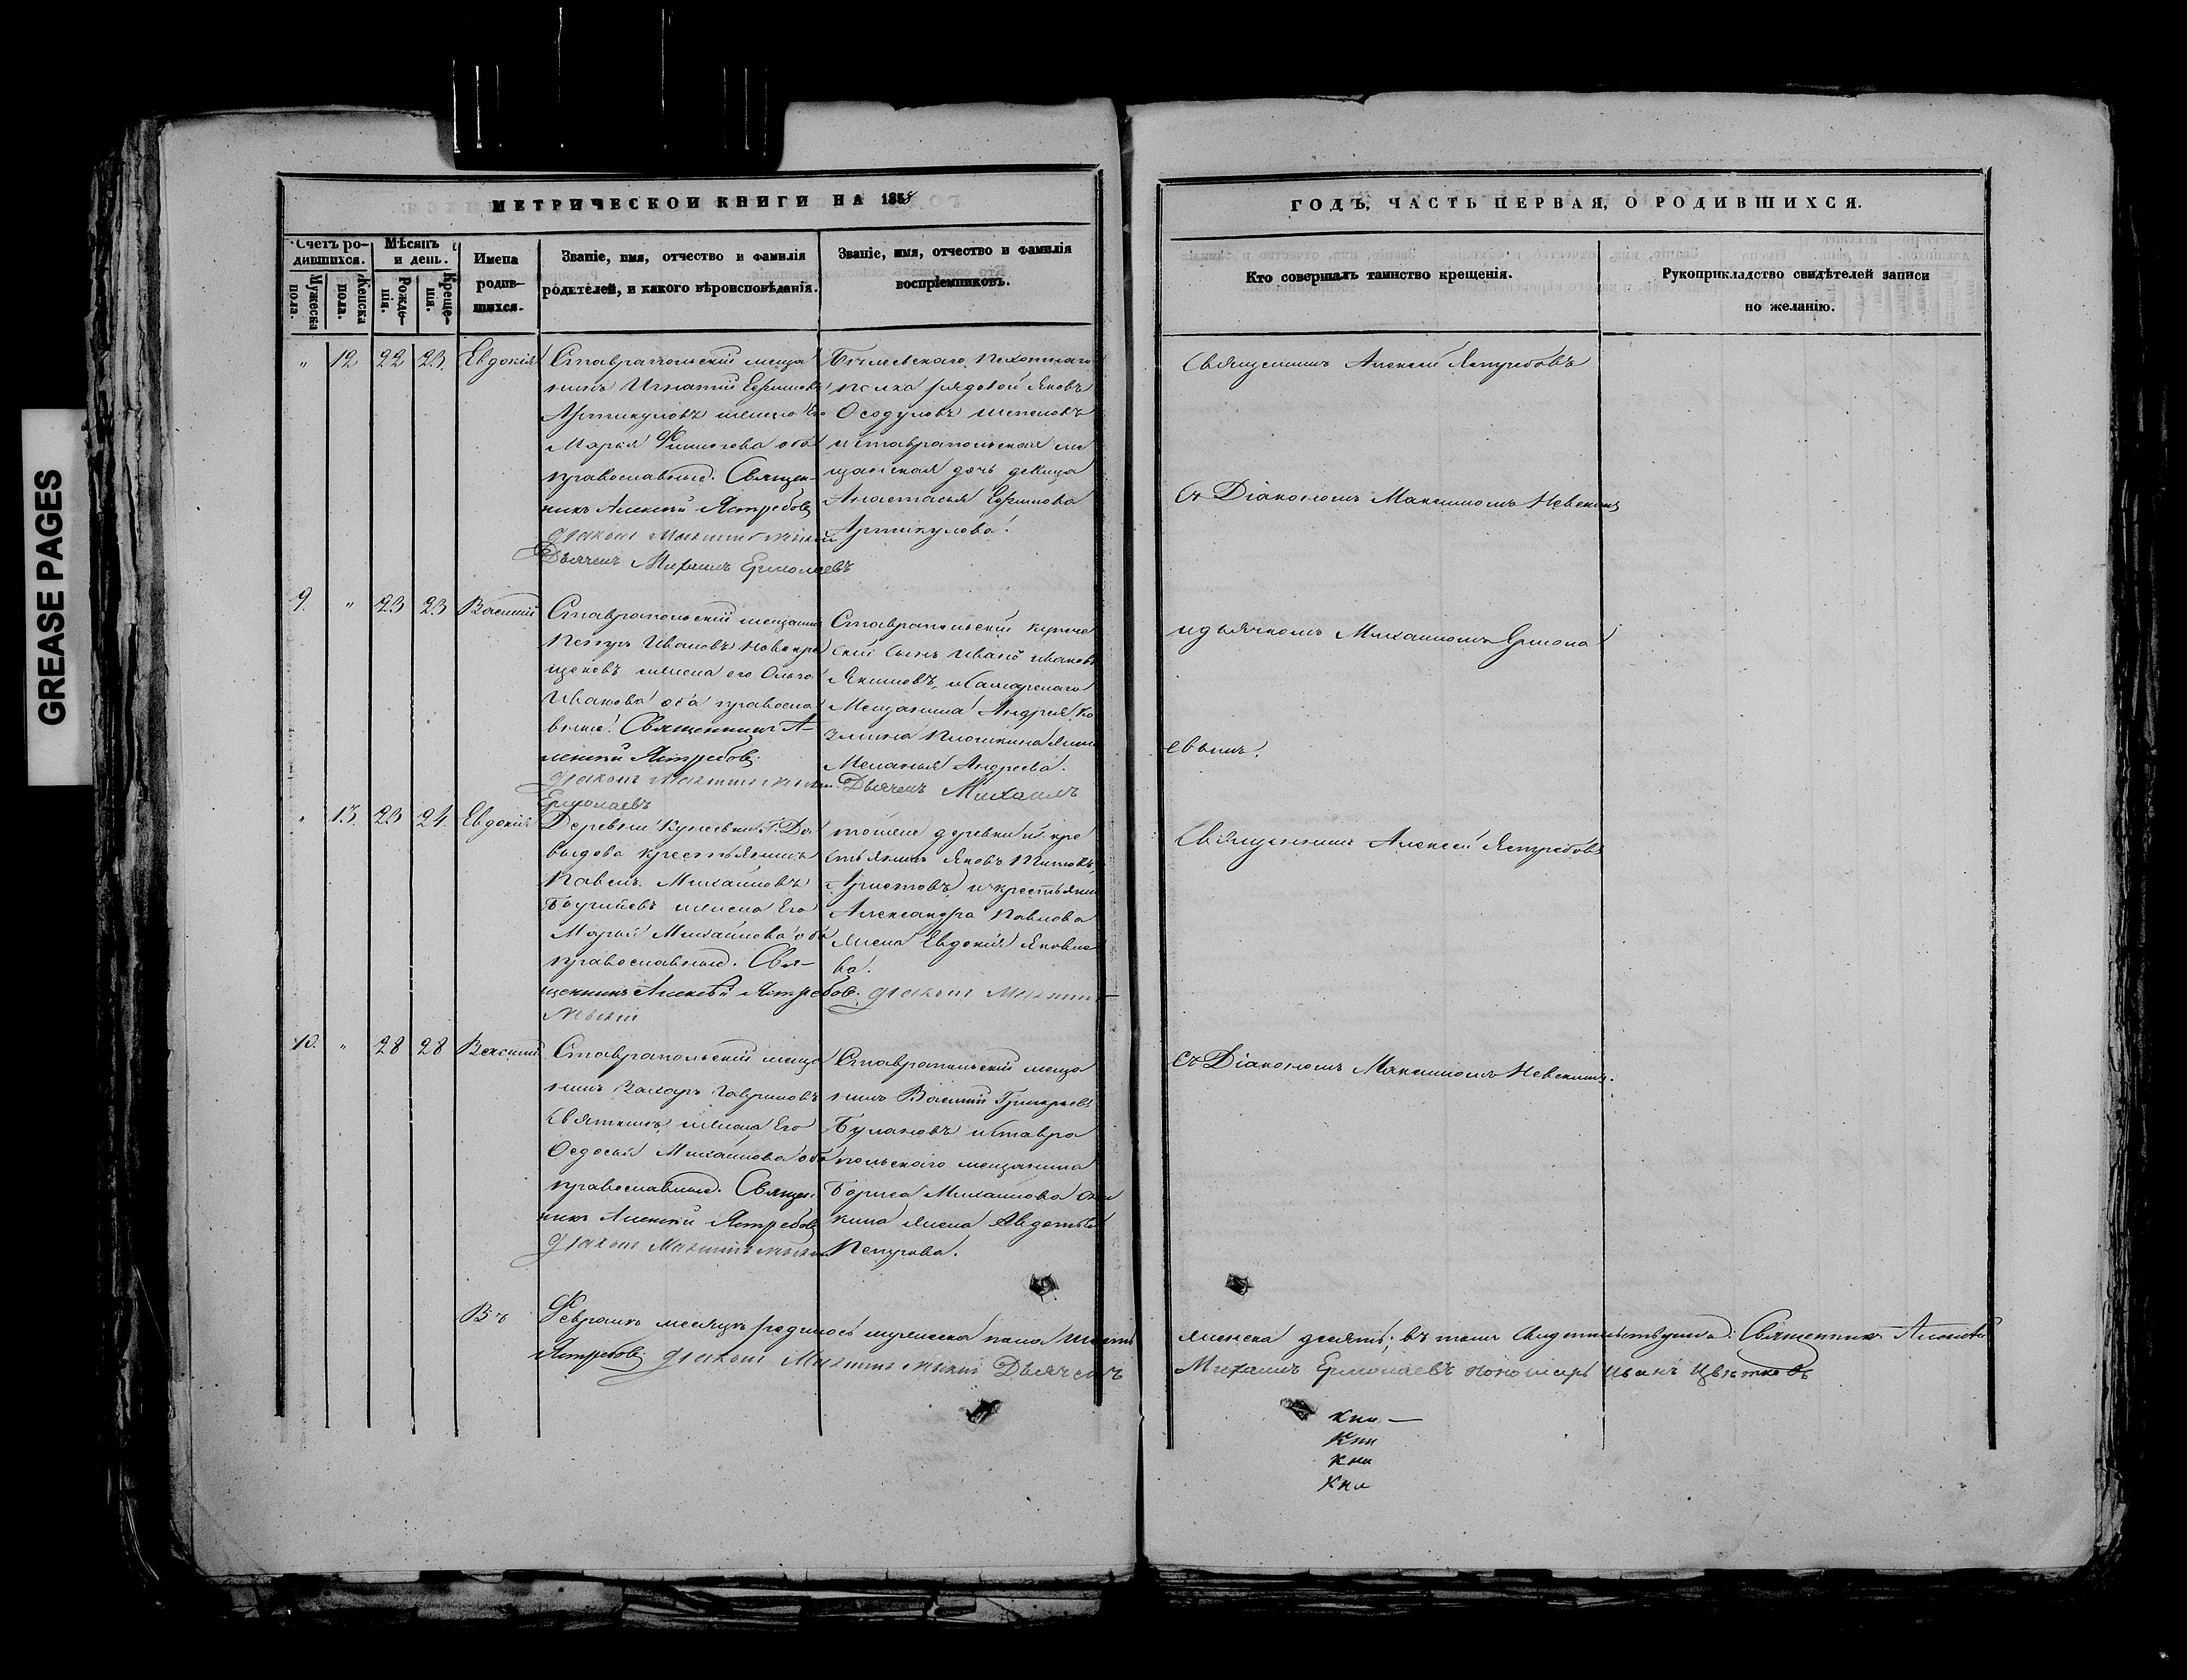 GREASE PAGES
МЕТРИЧЕСКОЙ КНИГИ НА 1858
ГОДЪ, ЧАСТЬ ПЕРВАЯ, О РОДИВШИХСЯ.
Счетъ ро-
дившихся.
Мужеска пола.
Женска пола.
Мѣсяцъ
и день.
Рожде-
нія.
Креще-
нія.
Имена
родив-
шихся.
Званіе, имя, отчество и фамилія
родителей, и какого вѣроисповѣданія.
Званіе, имя, отчество и фамилія
воспріемниковъ.
Кто совершалъ таинство крещенія.
Рукоприкладство свидѣтелей записи
по желанію.
" 12 22 23. Евдокія
Ставропольскій меща
нинъ Игнатій Ефимовъ
Артикуловъ жена Его
Марья Филипова оба
православные. Священ-
никъ Алексѣй Ястребовъ
Діаконъ Максимъ Невскій
Дьячекъ Михаилъ Ермолаевъ
пехотнаго
полка рядовой Яковъ
и ставропольская ме
щанская дочь девица
Анастасья Ефимова
Артикулова.
Священникъ Алексей Ястребовъ
Съ Діакономъ Максимомъ Невскимъ
идьячкомъ Михаиломъ Ермола
евымъ.
9. " 23 23 Василій
Ставропольскій мещанинъ
Петръ Ивановъ Новокре
щеновъ жена его Ольга
Иванова оба правосла
вные. Священникъ А-
лексѣй Ястребовъ.
Діаконъ Максимъ Невскій. Дьячекъ Михаилъ
Ермолаевъ
Ставропольскій купече
скій сынъ Иванъ Ивановъ
Якимовъ, исамарскаго
Мещанина Андрея
жена
Меланья Андреева.
" 13. 23 24. Евдокія
Деревни Кунеевки Г. Да
выдова крестьянинъ
Павелъ Михайловъ
жена Его
Марья Михайлова оба
православные. Свя-
щенникъ Алексѣй Ястребовъ. Діаконъ Максимъ
Невскій
тойже деревни кре
стьянинъ Яковъ Титовъ
Аристовъ и крестьянина
Александра Павлова
жена Евдокія Яковле
ва.
Священникъ Алексей Ястребовъ
Съ Діакономъ Максимомъ Невскимъ.
10. " 28 28 Василій
Ставропольскій меща
нинъ Захаръ Гавриловъ
Святкинъ жена Его
Федосья Михайлова оба
православные. Священ
никъ Алексѣй Ястребовъ
Діаконъ Максимъ Невскій
Ставропольскій меща
нинъ Василій Григорьевъ
Булановъ иставро
польскаго мещанина
Бориса Михайлова
кина жена Авдотья
Петрова.
Въ Февралѣ месяцѣ родилось мужеска пола шесть женска десять; въ томъ свидѣтельствуемъ: Священникъ Алексѣй
Ястребовъ. Діаконъ Максимъ Невскій Дьячекъ Михаилъ Ермолаевъ пономарь Иванъ Цвѣтковъ